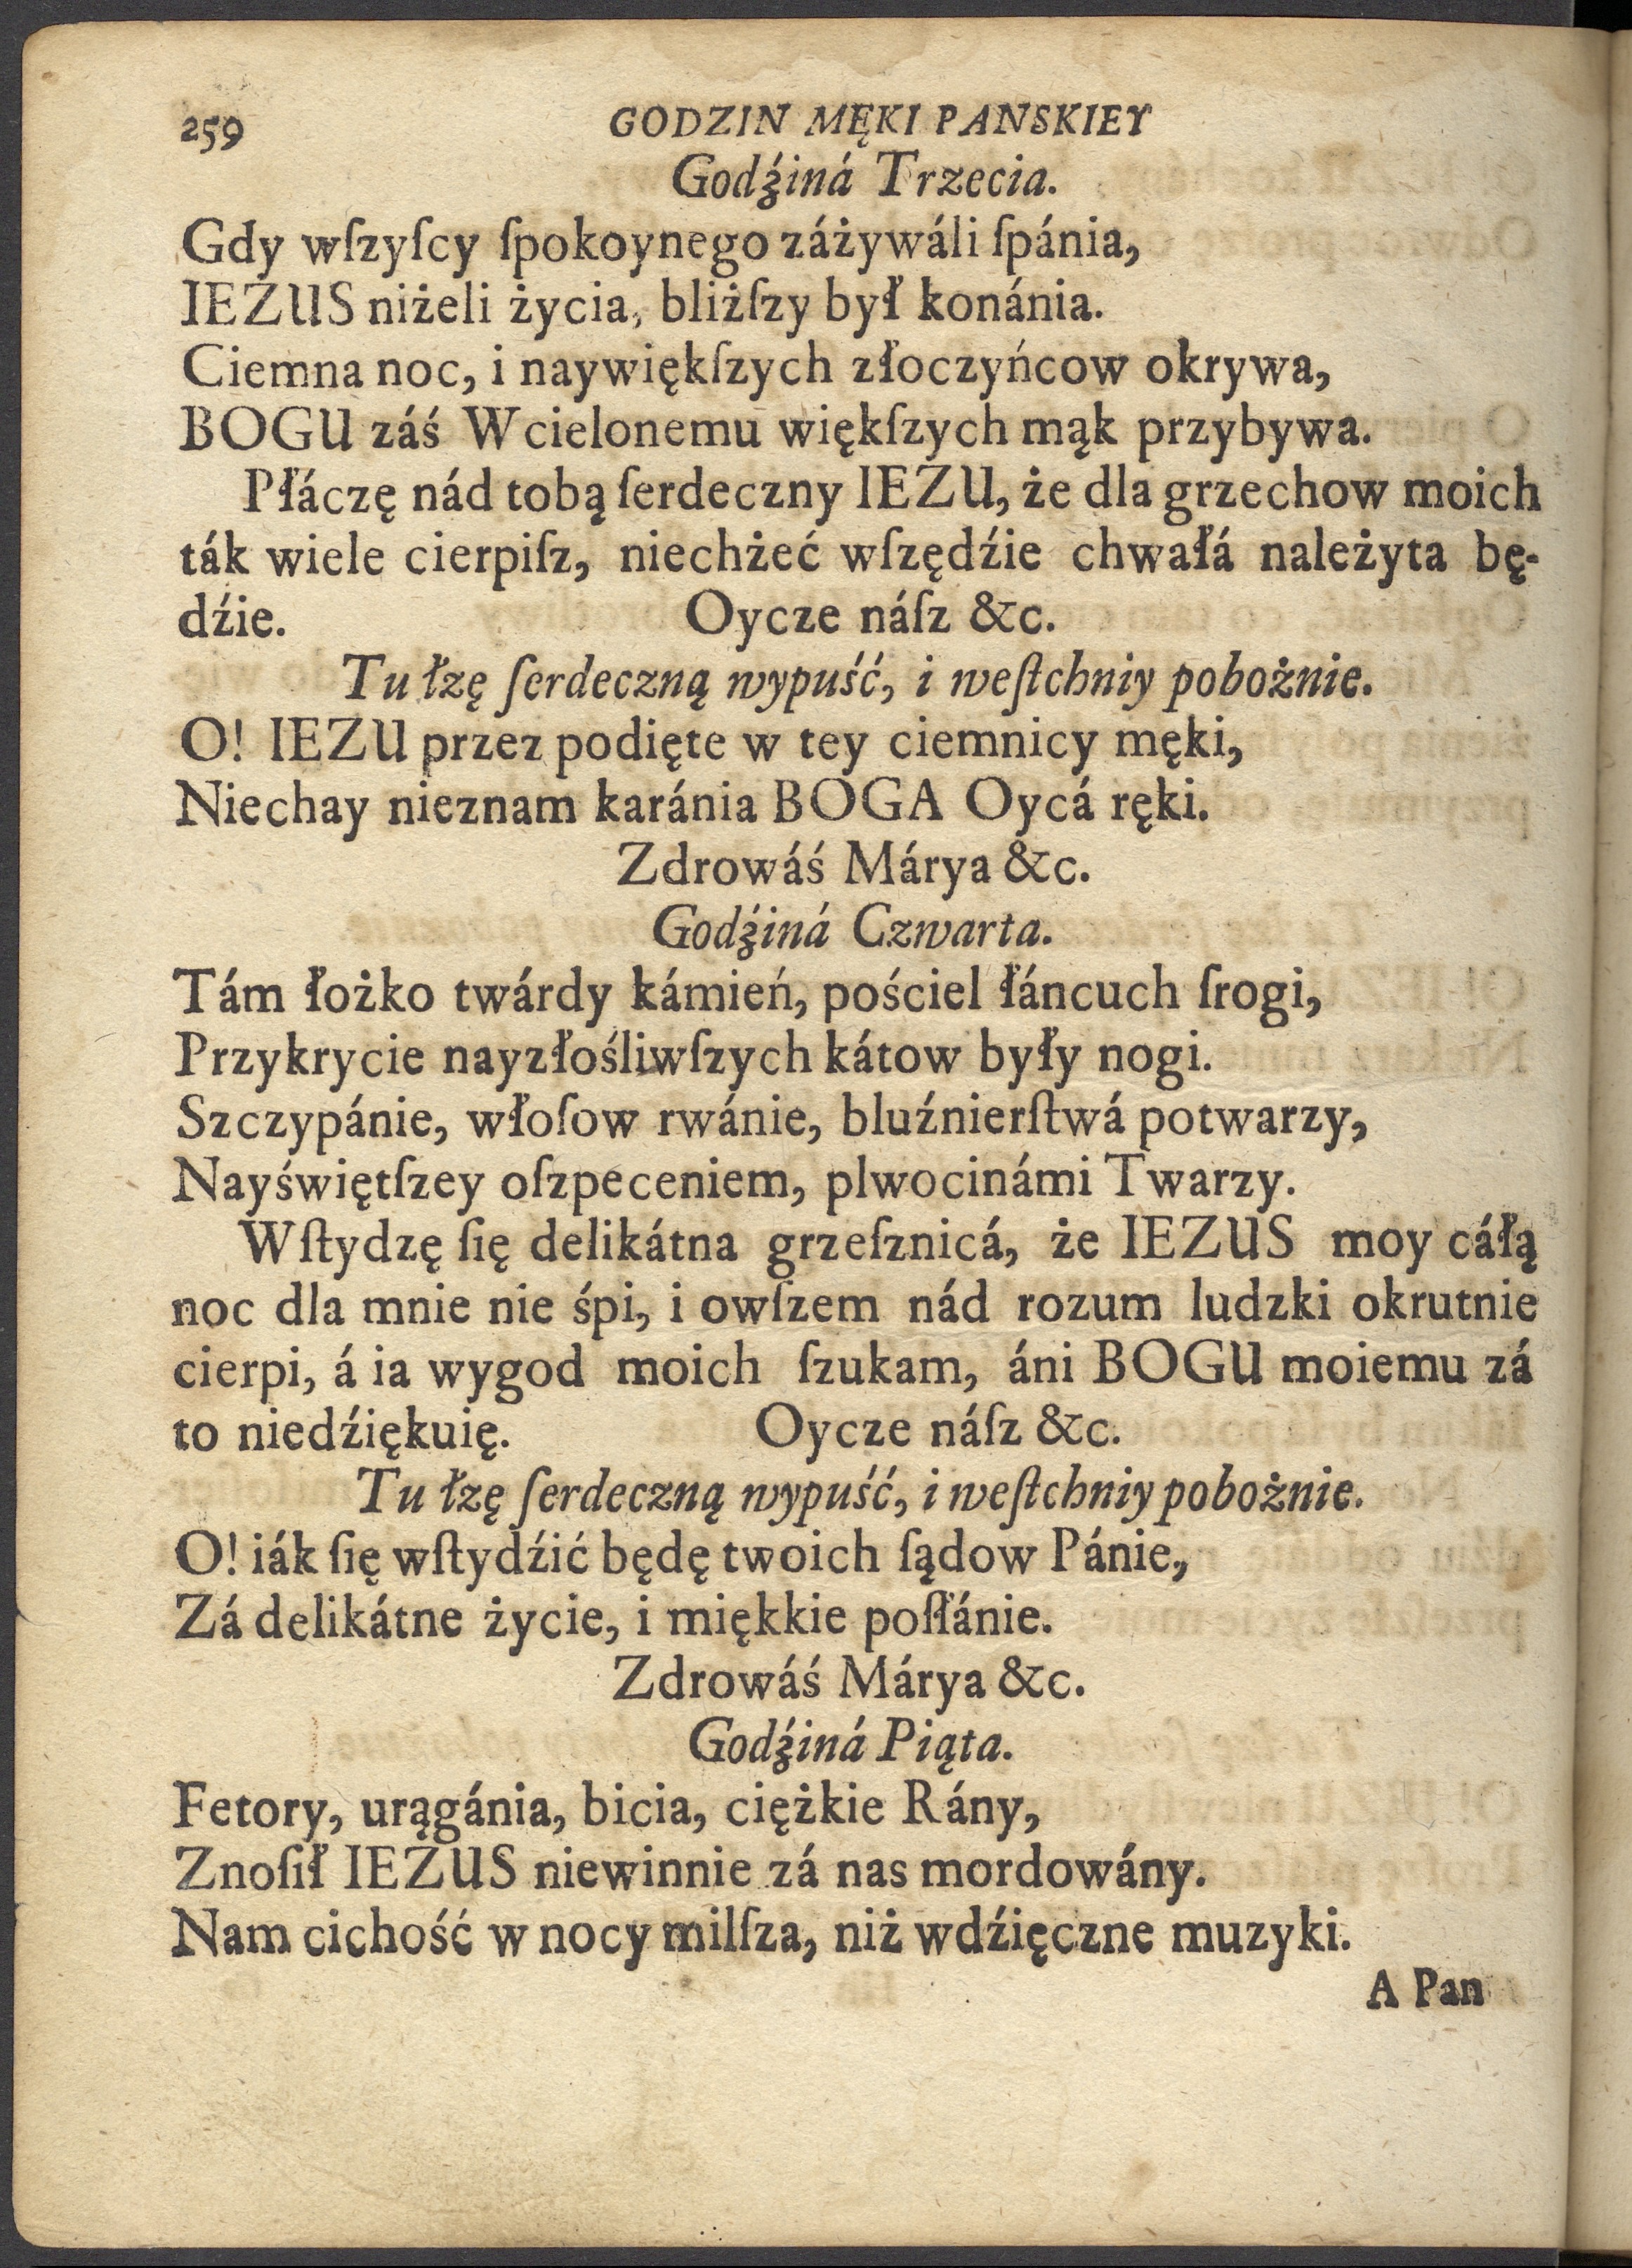 259 GODZIN MĘKI PANSKIEY
Godźiná Trzecia.
Gdy wſzyſcy ſpokoynego záżywáli ſpánia,
IEZUS niżeli życia, bliżſzy był konánia.
Ciemna noc, i naywiękſzych złoczyńcow okrywa,
BOGU záś Wcielonemu więkſzych mąk przybywa.
Płáczę nád tobą ſerdeczny IEZU, że dla grzechow moich
ták wiele cierpiſz, niechżeć wſzędźie chwałá należyta bę-
dźie. Oycze náſz &c.
Tu łzę ſerdeczną wypuść, i weſtchniy pobożnie.
O! IEZU przez podięte w tey ciemnicy męki,
Niechay nieznam karánia BOGA Oycá ręki.
Zdrowáś Márya &c.
Godźiná Czwarta.
Tám łożko twárdy kámień, pościel łáncuch ſrogi,
Przykrycie nayzłośliwſzych kátow były nogi.
Szczypánie, włoſow rwánie, bluźnierſtwá potwarzy,
Nayświętſzey oſzpeceniem, plwocinámi Twarzy.
Wſtydzę ſię delikátna grzeſznicá, że IEZUS moy cáłą
noc dla mnie nie śpi, i owſzem nád rozum ludzki okrutnie
cierpi, á ia wygod moich ſzukam, áni BOGU moiemu zá
to niedźiękuię. Oycze náſz &c.
Tu łzę ſerdeczną wypuść, i weſtchniy pobożnie.
O! iák ſię wſtydźić będę twoich ſądow Pánie,
Zá delikátne życie, i miękkie poſłánie.
Zdrowáś Márya &c.
Godźiná Piąta.
Fetory, urągánia, bicia, ciężkie Rány,
Znoſił IEZUS niewinnie zá nas mordowány.
Nam cichość w nocy milſza, niż wdźięczne muzyki.
A Pan